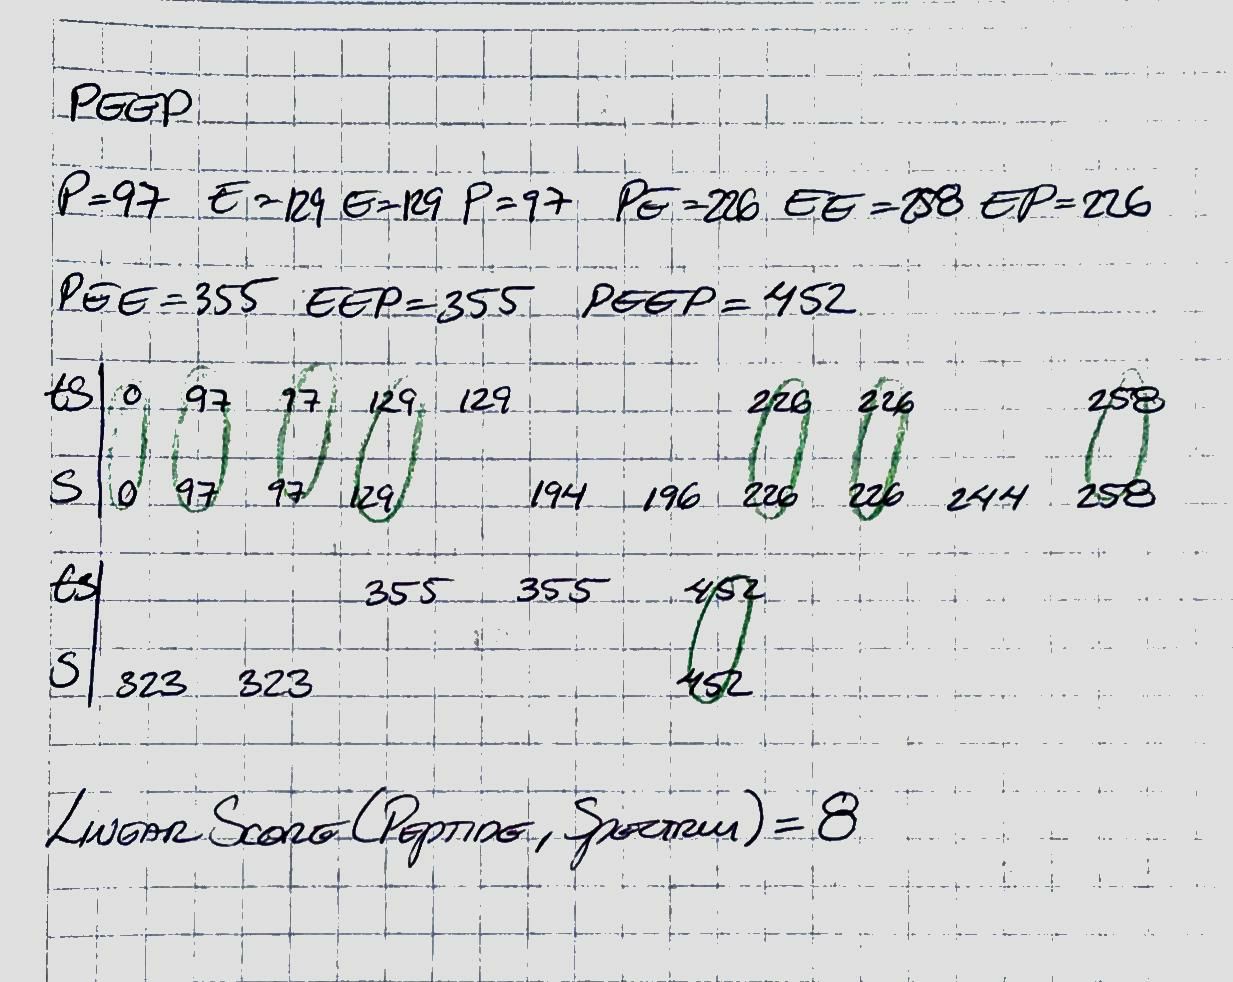 PEEP
P=97 E=129 E=129 P=97 PE=226 EE=258 EP=226
PEE=355 EEP=355 PEEP=452
ts 0 97 97 129 129 226 226 258
S 0 97 97 129 194 196 226 226 244 258
ts 355 355 452
S 323 323 452
LINEAR SCORE (PEPTIDE, SPECTRUM) = 8